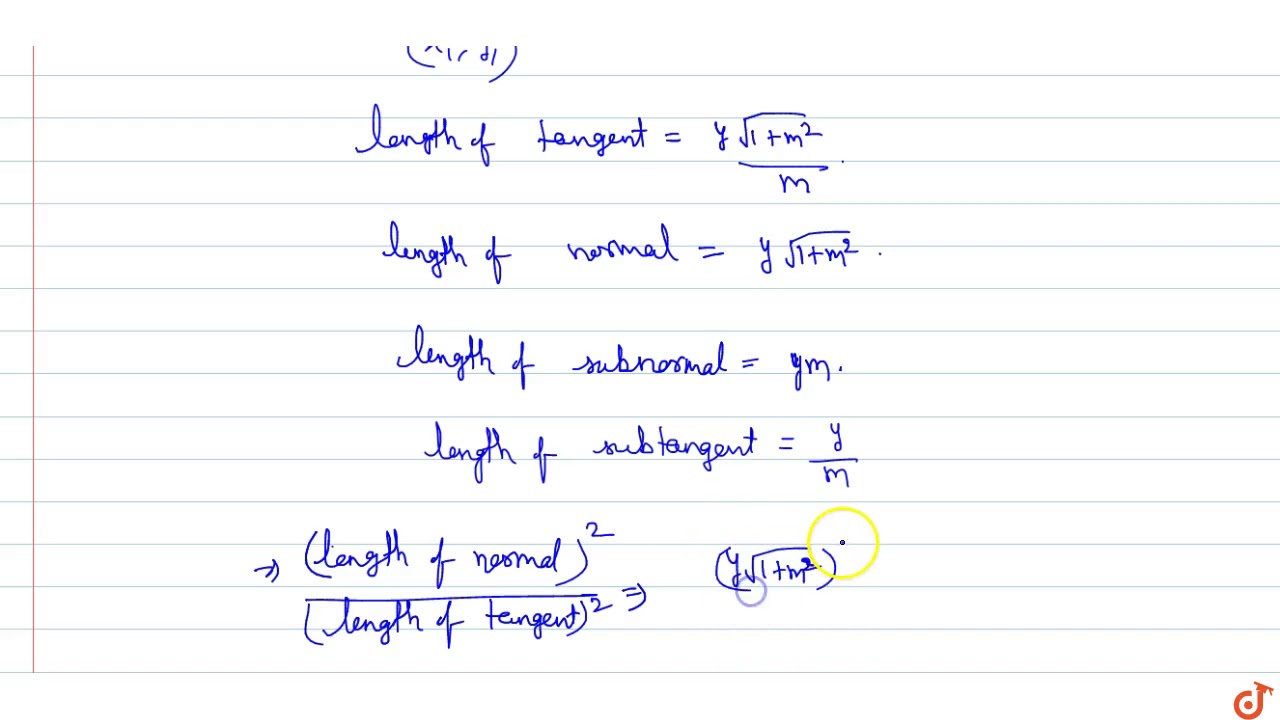 length of tangent = y√1+m² / m .
length of normal = y√1+m² .
length of subnormal = ym.
length of subtangent = y / m
⇒ (length of normal)² / (length of tangent)² ⇒ (y√1+m²)